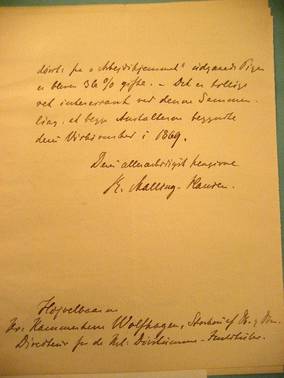 dövst. fra "Arbejdshjemmet" udgaaede Piger
er bleven 36 % gifte. – Det er
ret interessant ved denne Sammen-
ligning, at begge Anstalterne begyndte
deres Virksomhed i 1869.
Deres allerærbødigst hengivne
R. Malling-Hansen.
Højvelbaarne
Hr. Kammerherre Wolfhagen, Storkors af D. og
Directeur for de Kgl. Døvstumme-Instituter.